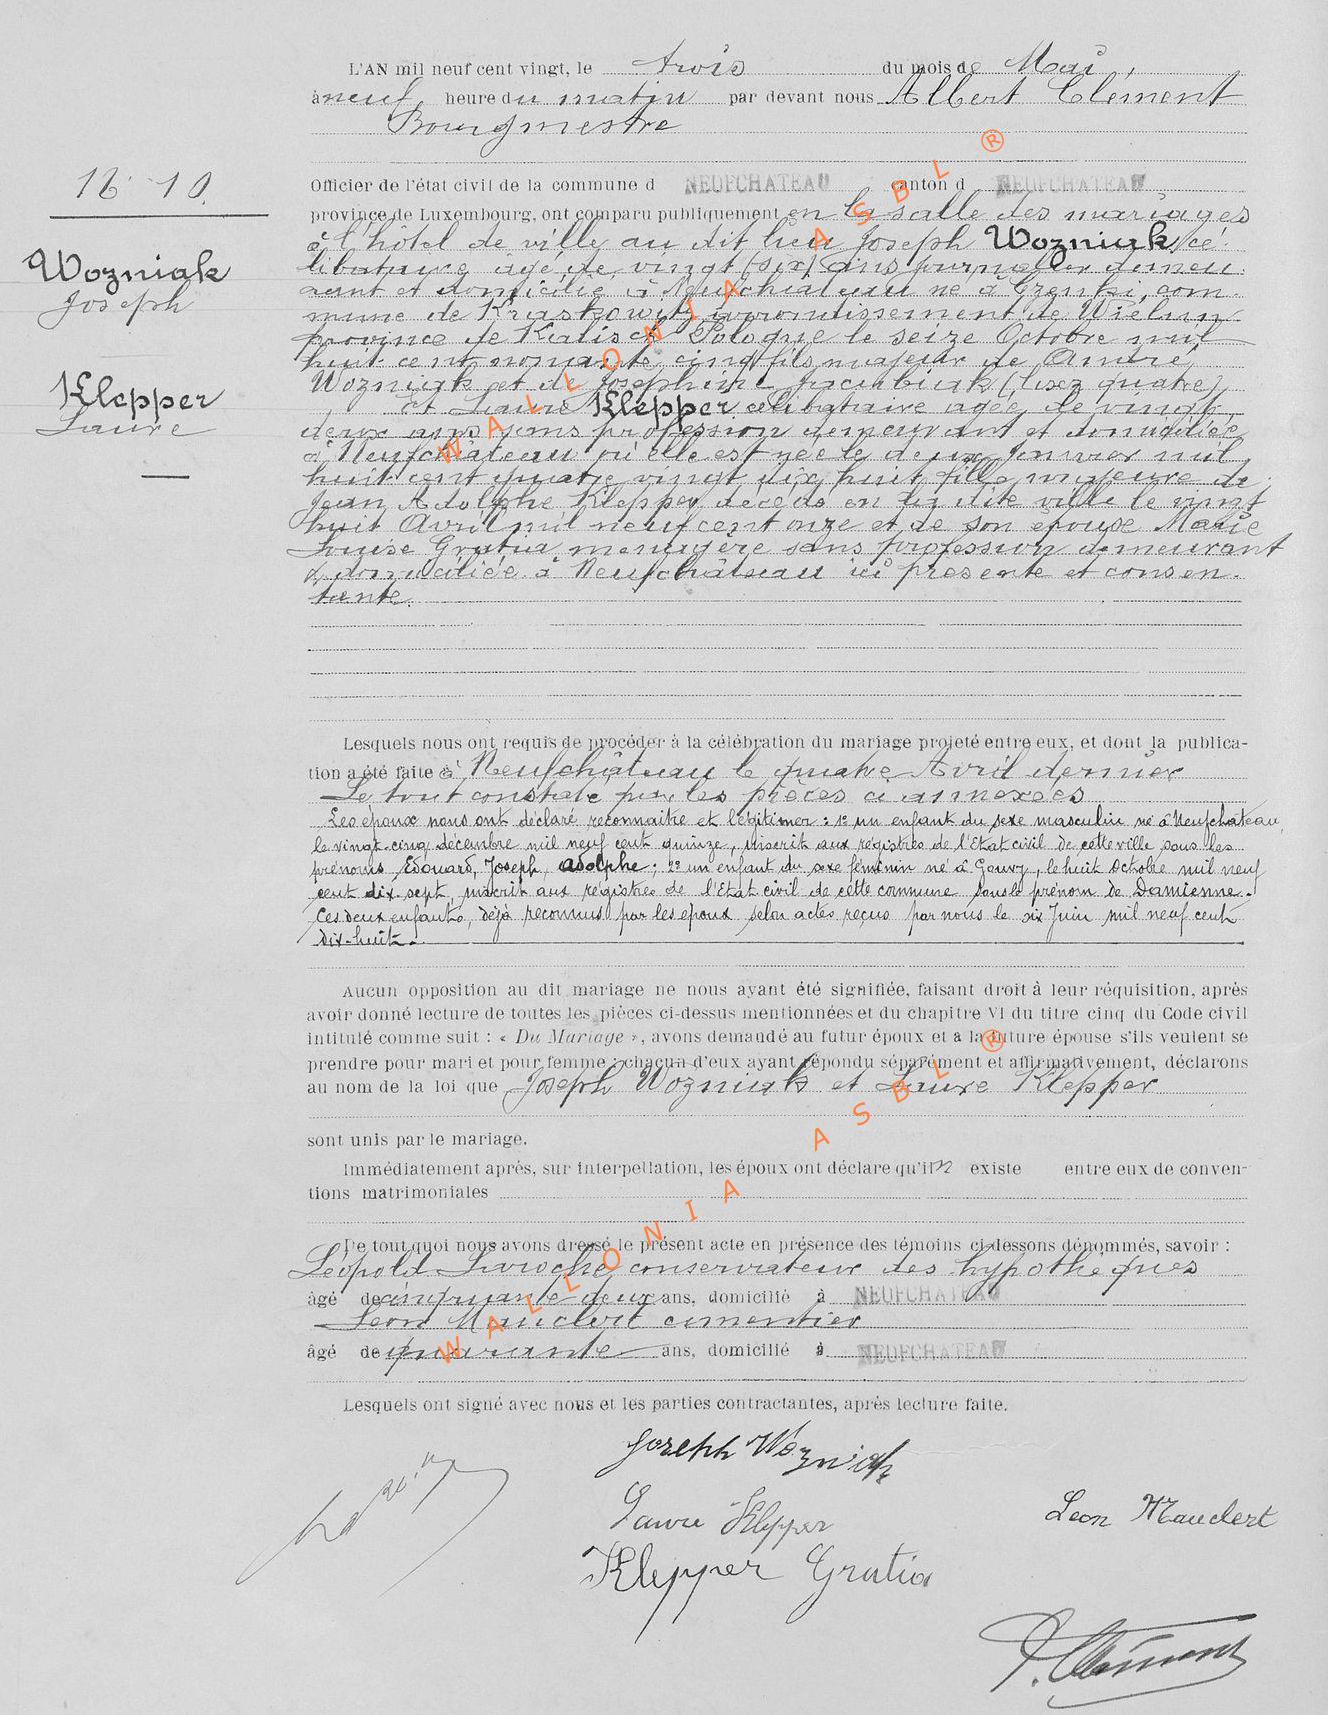 L'AN mil neuf cent vingt, le trois du mois de Mai,
à neuf heure du matin par devant nous Albert Clément
Bourgmestre
Officier de l'état civil de la commune d NEUFCHATEAU canton d NEUFCHATEAU
province de Luxembourg, ont comparu publiquement en la salle des mariages
à l'hôtel de ville au dit lieu Joseph Wozniak, cé-
libataire âgé de vingt (six) ans journalier demeu-
rant et domicilié à Neufchâteau né à Grenki, com-
mune de Kraskowitz arrondissement de Wielun
province de Kalisch Pologne le seize Octobre mil
huit cent nonante cinq fils majeur de André
Wozniak et de Josephine Jacubiak (lisez quatre)
Et Laure Klepper célibataire agée de vingt
deux ans sans profession demeurant et domiciliée
à Neufchâteau où elle est née le deux Janvier mil
huit cent quatre vingt dix huit fille majeure de
Jean Adolphe Klepper décédé en la dite ville le vingt
huit Avril mil neuf cent onze et de son épouse Marie
Louise Gratia menagère sans profession demeurant
& domiciliée à Neufchâteau ici présente et consen-
tante.
16 10.
Wozniak
Joseph
Klepper
Laure
Lesquels nous ont requis de procéder à la célébration du mariage projeté entre eux, et dont la publica-
tion a été faite à Neufchâteau le quatre Avril dernier
Le tout constaté par les pièces ci annexées
Les époux nous ont déclaré reconnaitre et légitimer : 1° un enfant du sexe masculin né à Neufchateau,
le vingt-cinq décembre mil neuf cent quinze, inscrit aux régistres de l'Etat civil de cette ville sous les
prénoms Edouard, Joseph, Adolphe ; 2° un enfant du sexe féminin né à Gouvy, le huit Octobre mil neuf
cent dix-sept, inscrit aux régistres de l'Etat civil de cette commune sous le prénom de Damienne.
Ces deux enfants, déjà reconnus par les époux selon actes reçus par nous le six Juin mil neuf cent
dix-huit.
Aucun opposition au dit mariage ne nous ayant été signifiée, faisant droit à leur réquisition, après
avoir donné lecture de toutes les pièces ci-dessus mentionnées et du chapitre VI du titre cinq du Code civil
intitulé comme suit : « Du Mariage », avons demandé au futur époux et à la future épouse s'ils veulent se
prendre pour mari et pour femme ; chacun d'eux ayant répondu séparément et affirmativement, déclarons
au nom de la loi que Joseph Wozniak et Laure Klepper
sont unis par le mariage.
Immédiatement après, sur interpellation, les époux ont déclare qu'il n existe entre eux de conven-
tions matrimoniales
De tout quoi nous avons dressé le présent acte en présence des témoins ci-dessons dénommés, savoir :
Léopold Laroche conservateur des hypothèques
âgé de cinquante deux ans, domicilié à NEUFCHATEAU
Léon Mauclert cimentier
âgé de quarante ans, domicilié à NEUFCHATEAU
Lesquels ont signé avec nous et les parties contractantes, après lecture faite.
Joseph Wozniak
Laure Klepper
Leon Mauclert
Klepper Gratia
Clément
WALLONIA ASBL ®
WALLONIA ASBL ®